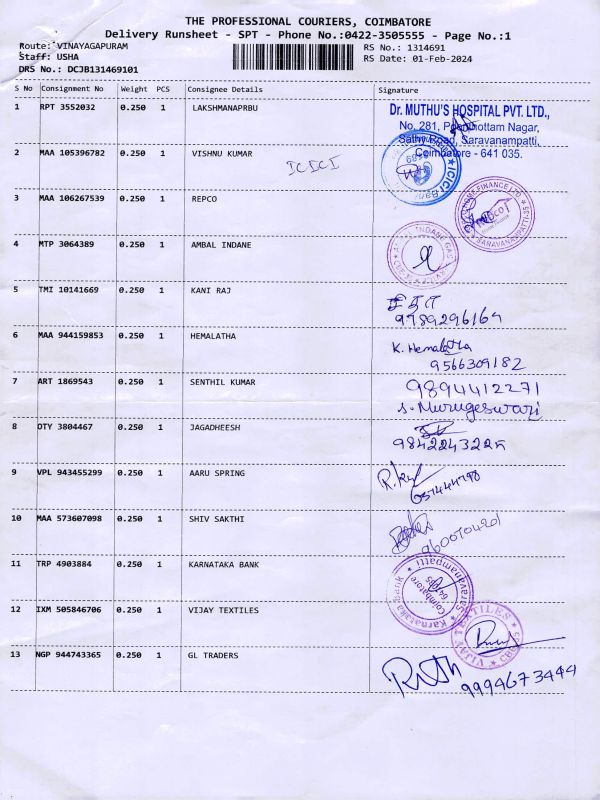 THE PROFESSIONAL COURIERS, COIMBATORE
Delivery Runsheet - SPT - Phone No.:0422-3505555 - Page No.:1
Route: VINAYAGAPURAM
RS No.: 1314691
Staff: USHA
RS Date: 01-Feb-2024
DRS No.: DCJB131469101
S No Consignment No Weight PCS Consignee Details Signature
1 RPT 3552032 0.250 1 LAKSHMANAPRBU
Dr. MUTHU'S HOSPITAL PVT. LTD.,
No. 281, Purushottam Nagar,
Sathy Road, Saravanampatti,
Coimbatore - 641 035.
2 MAA 105396782 0.250 1 VISHNU KUMAR
ICICI
ICICI Bank
3 MAA 106267539 0.250 1 REPCO
HOME FINANCE LTD
SARAVANAMPATTI
4 MTP 3064389 0.250 1 AMBAL INDANE
INDANE GAS
5 TMI 10141669 0.250 1 KANI RAJ
9789296164
6 MAA 944159853 0.250 1 HEMALATHA
K. Hemalatha
9566309182
7 ART 1869543 0.250 1 SENTHIL KUMAR
9894412271
S. Murugeswari
8 OTY 3804467 0.250 1 JAGADHEESH
9842243225
9 VPL 943455299 0.250 1 AARU SPRING
10 MAA 573607098 0.250 1 SHIV SAKTHI
9600704201
11 TRP 4903884 0.250 1 KARNATAKA BANK
Karnataka Bank
Saravanampatti
Coimbatore
12 IXM 505846706 0.250 1 VIJAY TEXTILES
VIJAY TEXTILES
13 NGP 944743365 0.250 1 GL TRADERS
9994673444